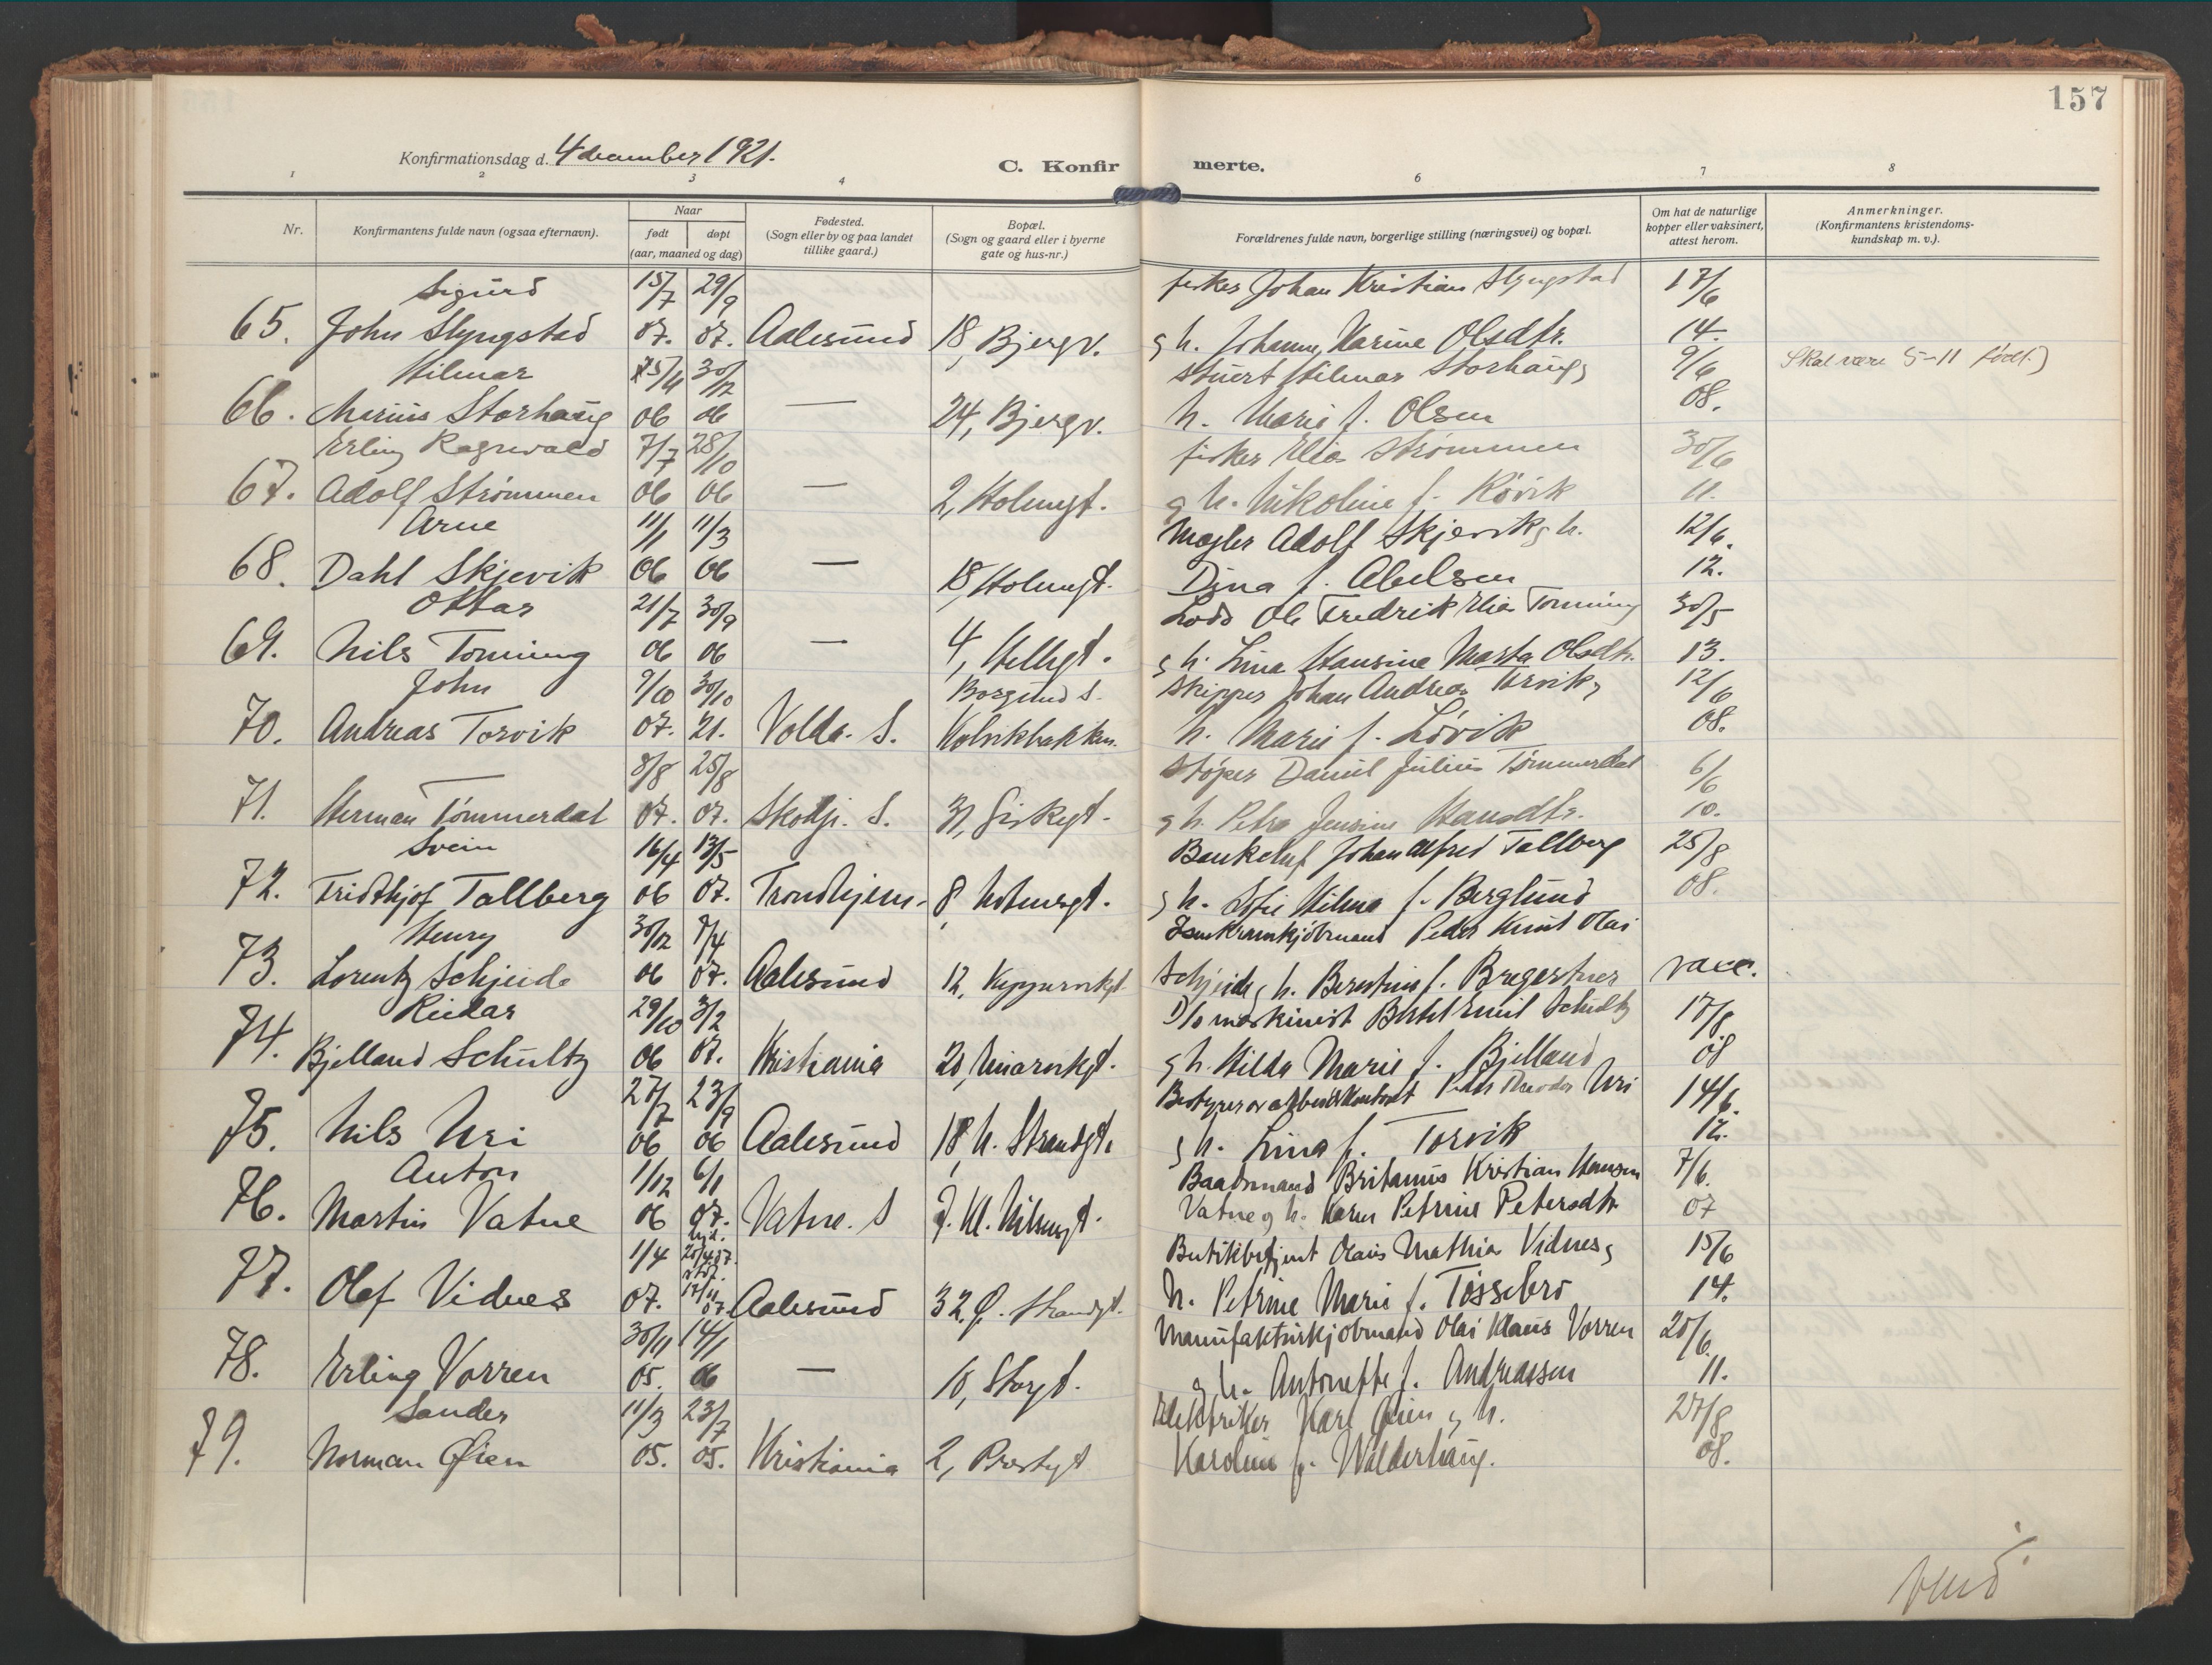 157
Konfirmationsdag d. 4 december 1921.
C. Konfir merte.
1 2 3 4 6 7 8
Nr. Konfirmantens fulde navn (ogsaa efternavn). Naar født døpt (aar, maaned og dag) Fødested. (Sogn eller by og paa landet tillike gaard.) Bopæl. (Sogn og gaard eller i byerne gate og hus-nr.) Forældrenes fulde navn, borgerlige stilling (næringsvei) og bopæl. Om hat de naturlige kopper eller vaksinert, attest herom. Anmerkninger. (Konfirmantens kristendoms-kundskap m. v.).
Sigurd 15/7 29/9 fisker Johan Kristian Slyngstad 17/6
65. John Slyngstad 07. 07. Aalesund 18, Bjergv. g h. Johanne Karine Olsdtr. 14.
Hilmar 15/4 30/12 Stuert Hilmar Storhaug g 9/6 Skal være 5-11 født.)
66. Marius Storhaug 06 06 — 24, Bjergv. h. Marie f. Olsen 08.
Erling Ragnvald 7/7 28/10 fisker Elias Strømmen 30/6
67. Adolf Strømmen 06 06 — 2, Holmgt. g h. Nikoline f. Røvik 11.
Arne 11/1 11/3 Mægler Adolf Skjevik g h. 12/6.
68. Dahl Skjevik 06 06 — 18, Holmgt. Dina f. Abelsen 12.
Ottar 21/7 30/9 Lods Ole Fredrik Elias Tonning 30/5
69. Nils Tonning 06 06 — 4, Hellegt. g h. Lina Hansine Marta Olsdtr. 13.
John 9/10 30/10 Borgund S. Skipper Johan Andreas Torvik g 12/6
70. Andreas Torvik 07. 21. Volda. S. Kolvikbakken. h. Marie f. Løvik 08.
8/8 25/8 Støper Daniel Julius Tømmerdal 6/6
71. Herman Tømmerdal 07. 07. Skodje. S. 31, Giskegt. g h. Petra Jensine Hansdtr. 10.
Svein 16/4 13/5 Bankchef Johan Alfred Tallberg 25/8
72. Fridthjof Tallberg 06 07. Trondhjem. 8, Notenesgt. g h. Sofie Hilma f. Berglund 08.
Henry 30/12 7/4 Isenkramkjøbmand Peder Knut Olai
73. Lorentz Schjeide 06 07. Aalesund 12, Kippervikgt. Schjeide g h. Berentine f. Bregestnes vacc.
Reidar 29/10 3/2 D/s maskinist Bertel Emil Schultz 17/8
74. Bjelland Schultz 06 07. Kristiania 20, h. Hilda Marie f. Bjelland 08
27/7 23/9 Bestyrer av arbeidskontoret Peder Theodor Uri 14/6.
75. Nils Uri 06 06 Aalesund 18, N. Strandgt. g h. Lina f. Torvik 12.
Anton 1/12 6/1 Baadsmand Britanus Kristian Hansen 7/6.
76. Martin Vatne 06 07. Vatne. S 7. Kl. Nilsengt. Vatne g h. Karen Petrine Petersdtr. 07
1/4 Butikbetjent Olaus Mathias Vidnes g 15/6
77. Olaf Vidnes 07. Aalesund 32. Ø. Strandgt. h. Petrine Marie f. Tøssebro 14.
30/11 14/1 Manufakturkjøbmand Olai Klaus Vorren 20/6.
78. Erling Vorren 05. 06 — 10, Storgt. g h. Antonette f. Andreassen 11.
Sander 11/3 23/7 Elektriker Karl Øien g h. 27/8
79. Norman Øien 05. 05. Kristiania 2, Prestegt Karoline f. Walderhaug. 08.
Vend